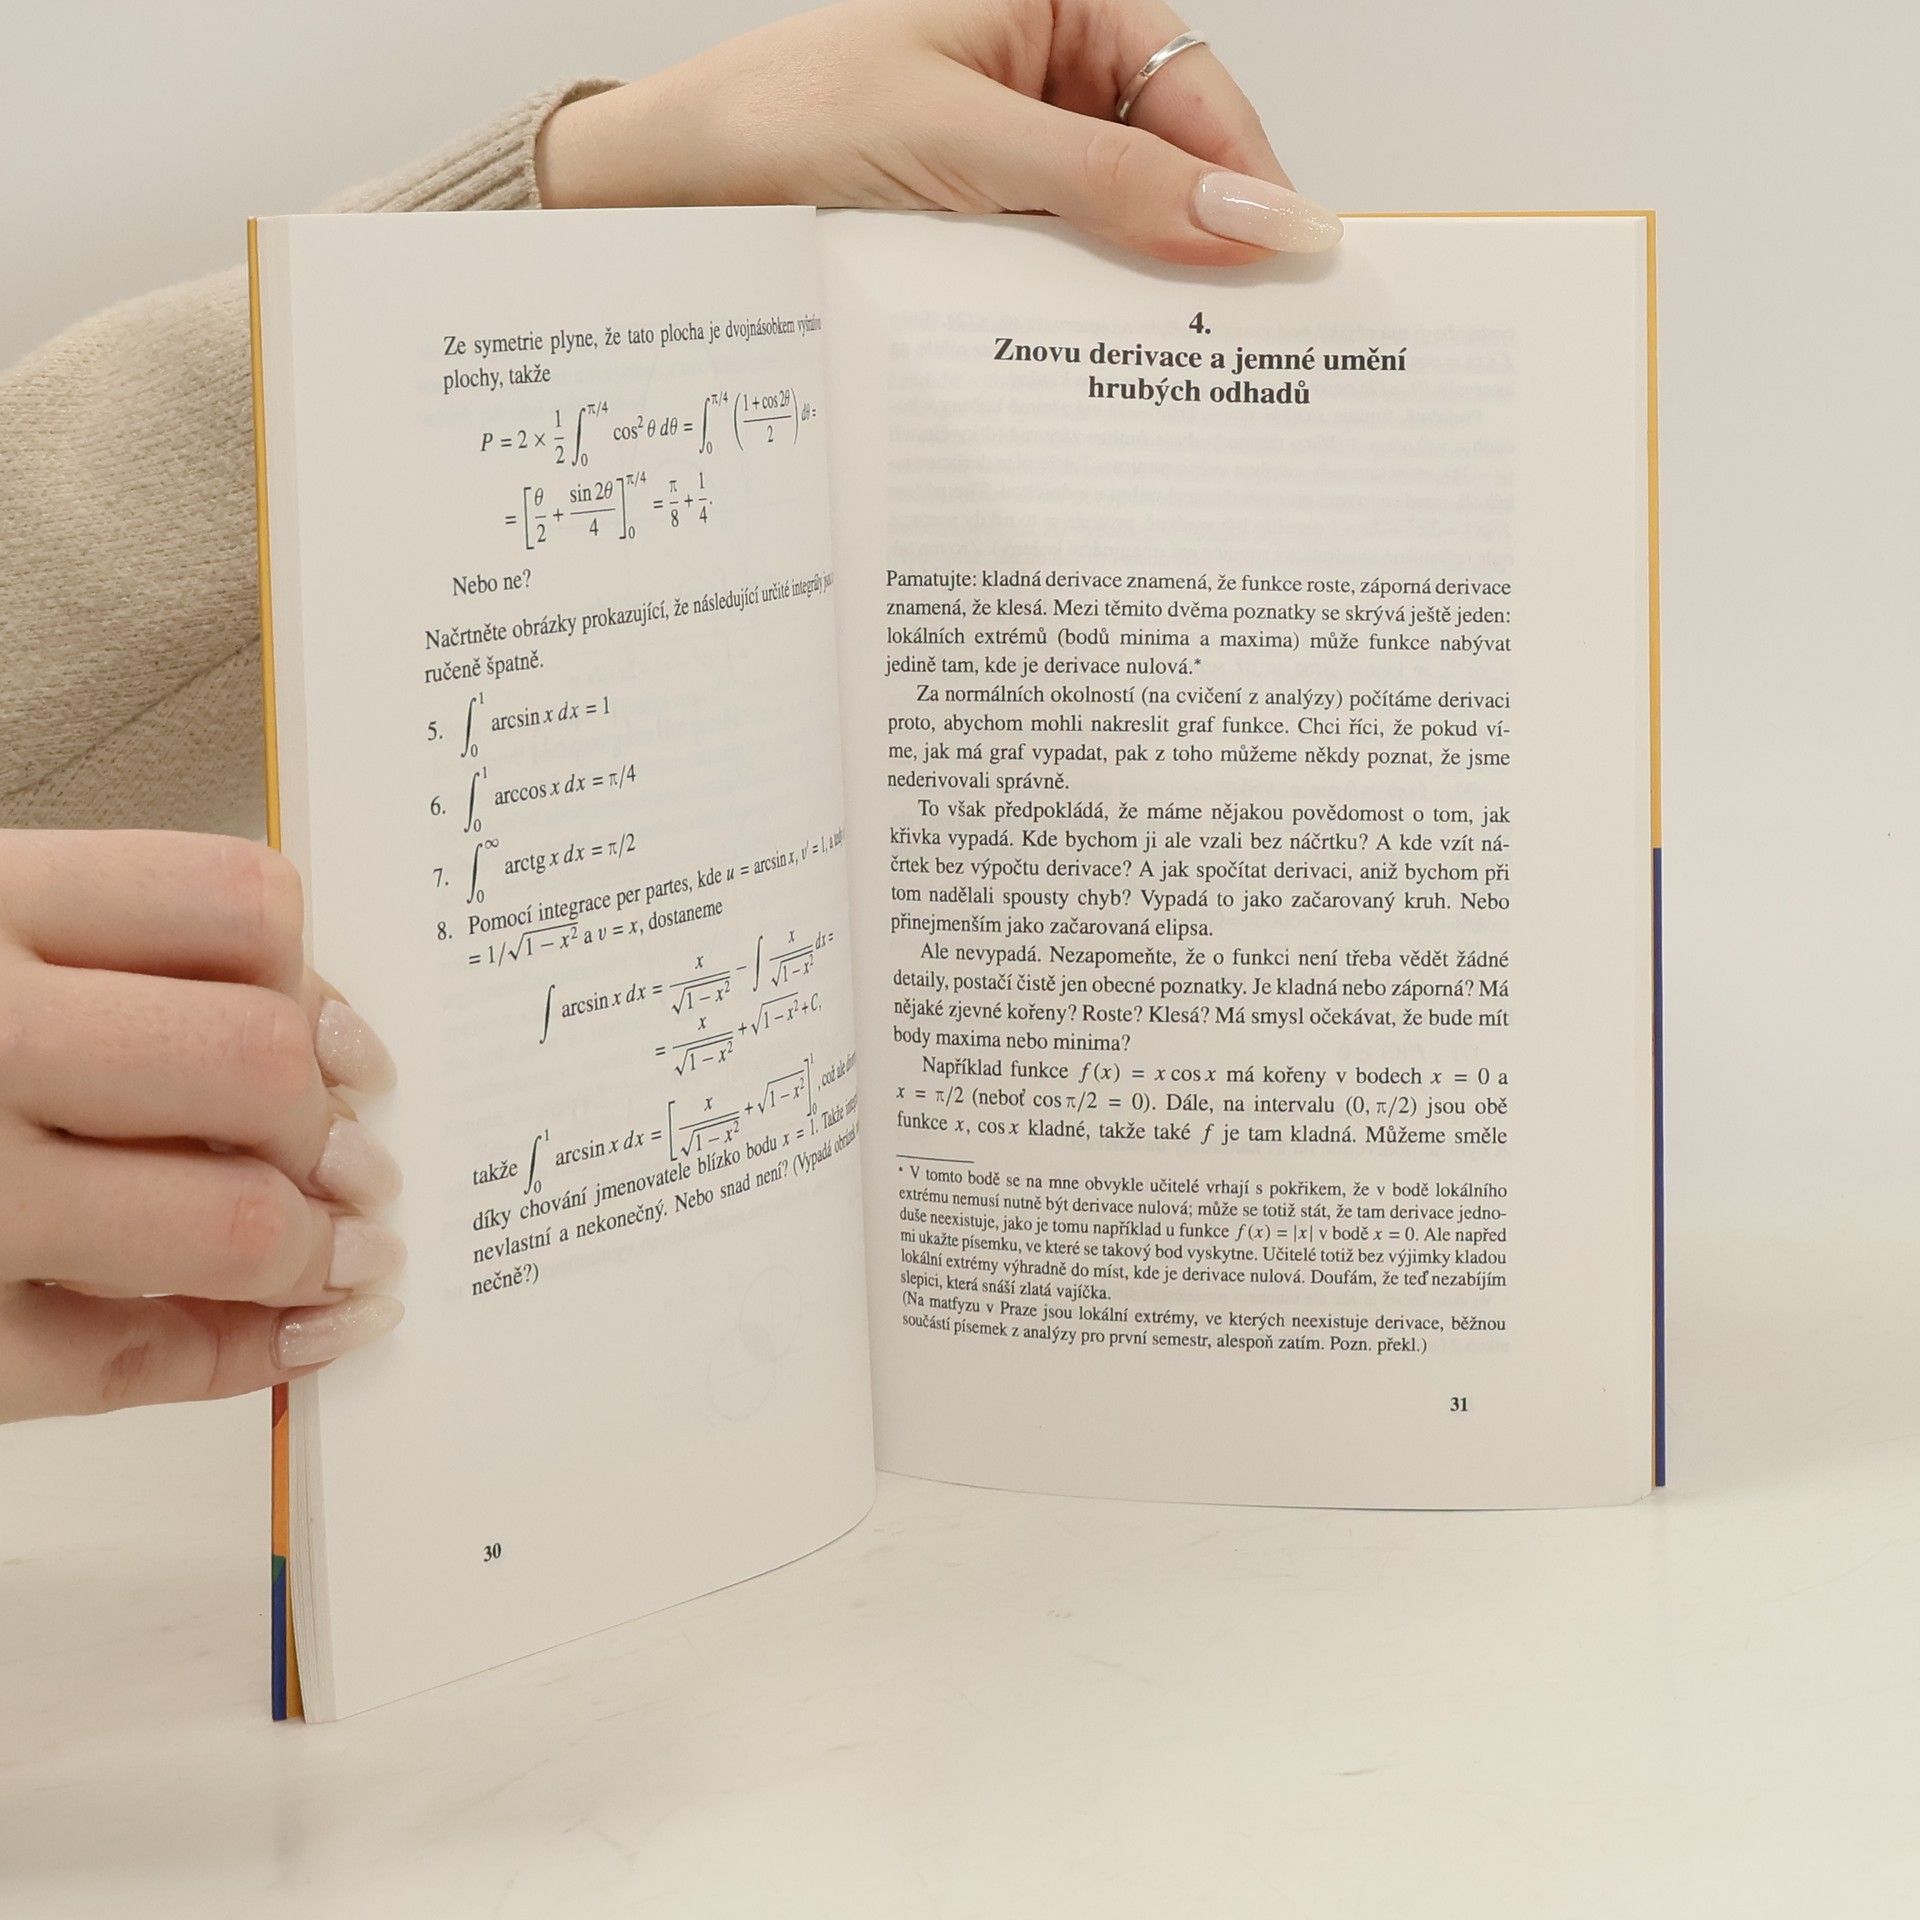 Ze symetrie plyne, že tato plocha je dvojnásobkem
plochy, takže
P = 2 × 1/2 ∫₀^{π/4} cos² θ dθ = ∫₀^{π/4} ((1 + cos 2θ)/2) dθ =
= [θ/2 + sin 2θ/4]₀^{π/4} = π/8 + 1/4.
Nebo ne?
Načrtněte obrázky prokazující, že následující určité integrály jsou
ručeně špatně.
5. ∫₀¹ arcsin x dx = 1
6. ∫₀¹ arccos x dx = π/4
7. ∫₀^∞ arctg x dx = π/2
8. Pomocí integrace per partes, kde u = arcsin x, v′ = 1, a
= 1/√(1 − x²) a v = x, dostaneme
∫ arcsin x dx = x/√(1 − x²) − ∫ x/√(1 − x²) dx =
= x/√(1 − x²) + √(1 − x²) + C,
takže ∫₀¹ arcsin x dx = [x/√(1 − x²) + √(1 − x²)]₀¹, což ale
díky chování jmenovatele blízko bodu x = 1. Takže
nevlastní a nekonečný. Nebo snad není? (Vypadá obrázek
nečně?)
30
4.
Znovu derivace a jemné umění
hrubých odhadů
Pamatujte: kladná derivace znamená, že funkce roste, záporná derivace
znamená, že klesá. Mezi těmito dvěma poznatky se skrývá ještě jeden:
lokálních extrémů (bodů minima a maxima) může funkce nabývat
jedině tam, kde je derivace nulová.*
Za normálních okolností (na cvičení z analýzy) počítáme derivaci
proto, abychom mohli nakreslit graf funkce. Chci říci, že pokud ví-
me, jak má graf vypadat, pak z toho můžeme někdy poznat, že jsme
nederivovali správně.
To však předpokládá, že máme nějakou povědomost o tom, jak
křivka vypadá. Kde bychom ji ale vzali bez náčrtku? A kde vzít ná-
črtek bez výpočtu derivace? A jak spočítat derivaci, aniž bychom při
tom nadělali spousty chyb? Vypadá to jako začarovaný kruh. Nebo
přinejmenším jako začarovaná elipsa.
Ale nevypadá. Nezapomeňte, že o funkci není třeba vědět žádné
detaily, postačí čistě jen obecné poznatky. Je kladná nebo záporná? Má
nějaké zjevné kořeny? Roste? Klesá? Má smysl očekávat, že bude mít
body maxima nebo minima?
Například funkce f(x) = x cos x má kořeny v bodech x = 0 a
x = π/2 (neboť cos π/2 = 0). Dále, na intervalu (0, π/2) jsou obě
funkce x, cos x kladné, takže také f je tam kladná. Můžeme směle
* V tomto bodě se na mne obvykle učitelé vrhají s pokřikem, že v bodě lokálního
extrému nemusí nutně být derivace nulová; může se totiž stát, že tam derivace jedno-
duše neexistuje, jako je tomu například u funkce f(x) = |x| v bodě x = 0. Ale napřed
mi ukažte písemku, ve které se takový bod vyskytne. Učitelé totiž bez výjimky kladou
lokální extrémy výhradně do míst, kde je derivace nulová. Doufám, že teď nezabíjím
slepici, která snáší zlatá vajíčka.
(Na matfyzu v Praze jsou lokální extrémy, ve kterých neexistuje derivace, běžnou
součástí písemek z analýzy pro první semestr, alespoň zatím. Pozn. překl.)
31